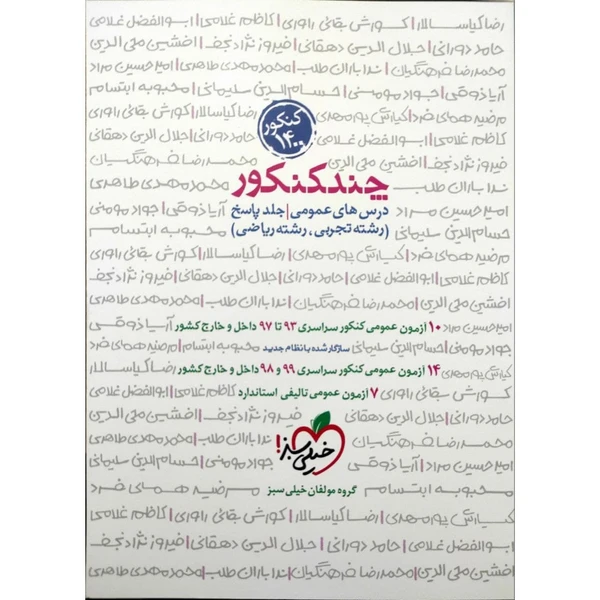 رضا کیاسالار|کورش بقائی راوری|کاظم غلامی|ابوالفضل غلامی
حامد دورانی|جلال الدین دهقانی|فیروز نژادنجف|افشین محی الدین
محمدرضا فرهنگیان|ندا باران طلب|محمدمهدی طاهری|امیرحسین مراد
آریا ذوقی|جواد مومنی|حسام الدین سلیمانی|محبوبه ابتسام
مرضیه همای فرد|کیارش پورمهدی رضا کیاسالار|کورش بقائی راوری
کنکور
۱۴۰۰
کاظم غلامی|ابوالفضل غلامی حامد دورانی|جلال الدین دهقانی
فیروز نژادنجف|افشین محی الدین محمدرضا فرهنگیان
ندا باران طلب محمدمهدی طاهری
چندکنکور
امیرحسین مراد آریا ذوقی|جواد مومنی
درس های عمومی|جلد پاسخ
حسام الدین سلیمانی محبوبه ابتسام
(رشته تجربی، رشته ریاضی)
مرضیه همای فرد|کیارش پورمهدی|رضا کیاسالار|کورش بقائی راوری
کاظم غلامی|ابوالفضل غلامی|حامد دورانی|جلال الدین دهقانی|فیروز نژادنجف
افشین محی الدین|محمدرضا فرهنگیان|ندا باران طلب|محمدمهدی طاهری
امیرحسین مراد ۱۰ آزمون عمومی کنکور سراسری ۹۳ تا ۹۷ داخل و خارج کشور آریا ذوقی
جواد مومنی|حسام الدین سلیمانی سازگار شده با نظام جدید محبوبه ابتسام|مرضیه همای فرد
کیارش پورمهدی ۱۴ آزمون عمومی کنکور سراسری ۹۹ و ۹۸ داخل و خارج کشور رضا کیاسالار
کورش بقائی راوری ۷ آزمون عمومی تالیفی استاندارد کاظم غلامی|ابوالفضل غلامی
حامد دورانی|جلال الدین دهقانی فیروز نژادنجف|افشین محی الدین
محمدرضا فرهنگیان ندا باران طلب|محمدمهدی طاهری
خیلی سبز!
امیرحسین مراد|آریا ذوقی جواد مومنی|حسام الدین سلیمانی
محبوبه ابتسام گروه مولفان خیلی سبز مرضیه همای فرد
کیارش پورمهدی|رضا کیاسالار|کورش بقائی راوری|کاظم غلامی
ابوالفضل غلامی|حامد دورانی|جلال الدین دهقانی|فیروز نژادنجف
افشین محی الدین|محمدرضا فرهنگیان|ندا باران طلب|محمدمهدی طاهری